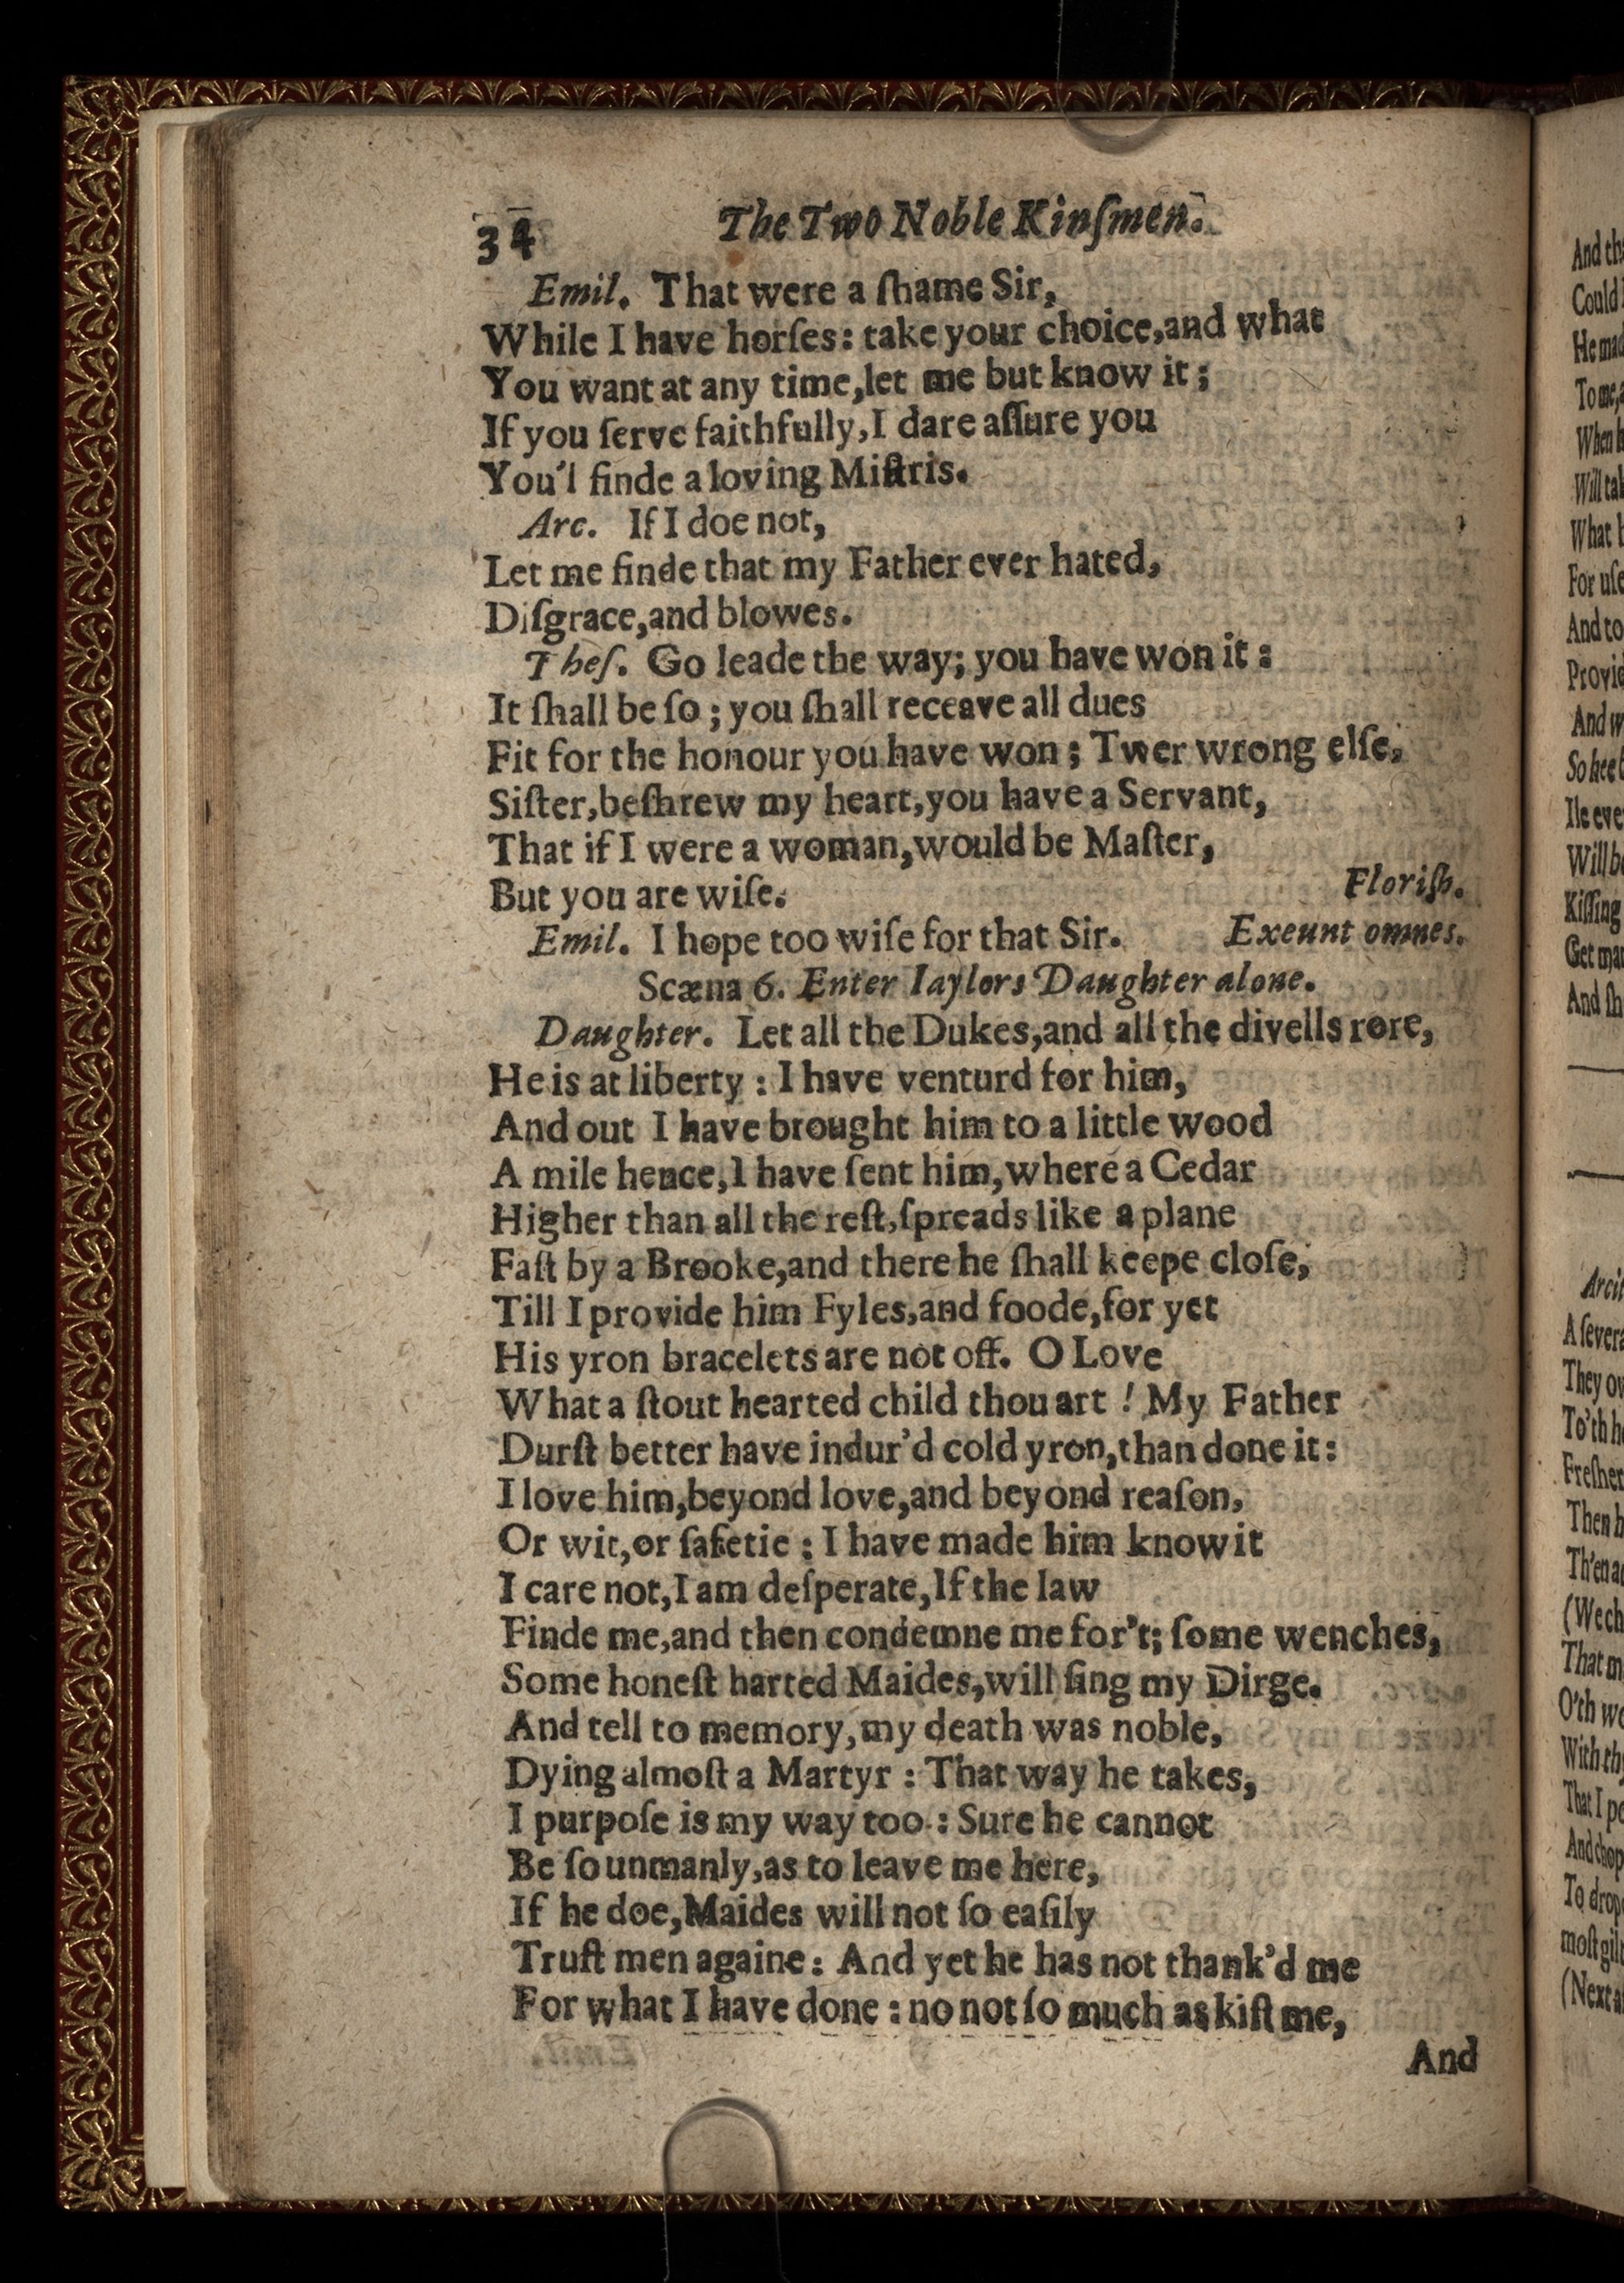 34 The Two Noble Kinſmen.
Emil. That were a ſhame Sir,
While I have horſes: take your choice,and what
You want at any time,let me but know it;
If you ſerve faithfully,I dare aſſure you
You'l finde a loving Miſtris.
Arc. If I doe not,
Let me finde that my Father ever hated,
Diſgrace,and blowes.
Theſ. Go leade the way; you have won it:
It ſhall be ſo; you ſhall receave all dues
Fit for the honour you have won; Twer wrong elſe,
Siſter,beſhrew my heart,you have a Servant,
That if I were a woman,would be Maſter,
But you are wiſe. Floriſh.
Emil. I hope too wiſe for that Sir. Exeunt omnes.
Scæna 6. Enter Iaylors Daughter alone.
Daughter. Let all the Dukes,and all the divells rore,
He is at liberty: I have venturd for him,
And out I have brought him to a little wood
A mile hence,I have ſent him,where a Cedar
Higher than all the reſt,ſpreads like a plane
Faſt by a Brooke,and there he ſhall keepe cloſe,
Till I provide him Fyles,and foode,for yet
His yron bracelets are not off. O Love
What a ſtout hearted child thou art! My Father
Durſt better have indur'd cold yron,than done it:
I love him,beyond love,and beyond reaſon,
Or wit,or ſafetie: I have made him know it
I care not,I am deſperate,If the law
Finde me,and then condemne me for't; ſome wenches,
Some honeſt harted Maides,will ſing my Dirge.
And tell to memory,my death was noble,
Dying almoſt a Martyr: That way he takes,
I purpoſe is my way too: Sure he cannot
Be ſo unmanly,as to leave me here,
If he doe,Maides will not ſo eaſily
Truſt men againe: And yet he has not thank'd me
For what I have done: no not ſo much as kiſt me,
And